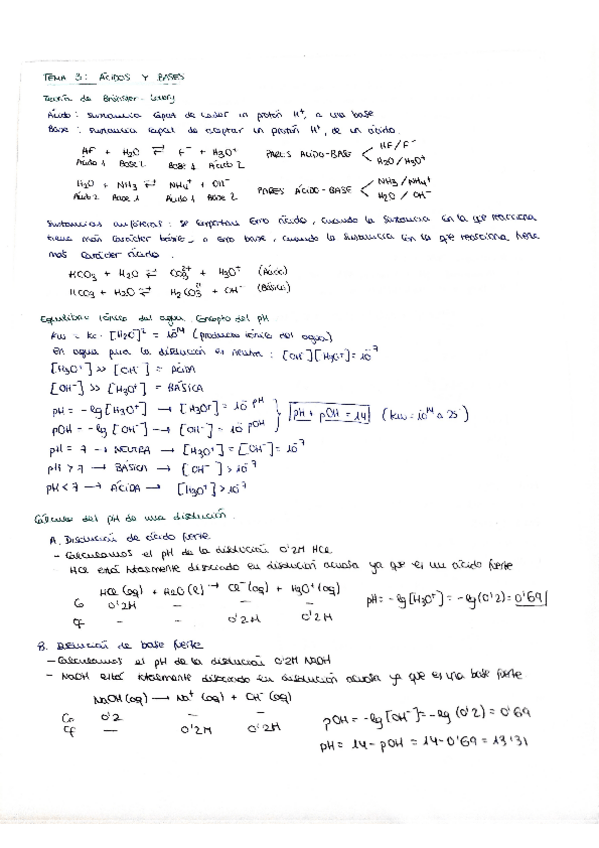 TEMA 3: ÁCIDOS Y BASES
Teoría de Brönster-Lowry
Ácido: sustancia capaz de ceder un protón H⁺, a una base
Base: sustancia capaz de aceptar un protón H⁺, de un ácido.
HF + H₂O ⇄ F⁻ + H₃O⁺ PARES ÁCIDO-BASE < HF/F⁻ H₂O/H₃O⁺
Ácido 1 Base 2 Base 1 Ácido 2
H₂O + NH₃ ⇄ NH₄⁺ + OH⁻ PARES ÁCIDO-BASE < NH₃/NH₄⁺ H₂O/OH⁻
Ácido 2 Base 1 Ácido 1 Base 2
Sustancias anfóteras: se comportan como ácido, cuando la sustancia con la que reacciona
tiene más carácter básico, o como base, cuando la sustancia con la que reacciona tiene
más carácter ácido.
HCO₃ + H₂O ⇄ CO₃ + H₃O⁺ (Ácido)
HCO₃ + H₂O ⇄ H₂CO₃ + OH⁻ (Básica)
Equilibrio iónico del agua. Concepto del pH
Kw = Kc · [H₂O]² = 10⁻¹⁴ (producto iónico del agua)
en agua pura la disolución es neutra: [OH⁻][H₃O⁺] = 10⁻⁷
[H₃O⁺] >> [OH⁻] = ÁCIDA
[OH⁻] >> [H₃O⁺] = BÁSICA
pH = -lg[H₃O⁺] → [H₃O⁺] = 10⁻ᵖᴴ
pOH = -lg[OH⁻] → [OH⁻] = 10⁻ᵖᴼᴴ } pH + pOH = 14 (Kw = 10⁻¹⁴ a 25°)
pH = 7 → NEUTRA → [H₃O⁺] = [OH⁻] = 10⁻⁷
pH > 7 → BÁSICA → [OH⁻] > 10⁻⁷
pH < 7 → ÁCIDA → [H₃O⁺] > 10⁻⁷
Cálculo del pH de una disolución.
A. Disolución de ácido fuerte
- Calculamos el pH de la disolución 0'2M HCl
- HCl está totalmente disociado en disolución acuosa ya que es un ácido fuerte
HCl (aq) + H₂O (l) → Cl⁻ (aq) + H₃O⁺ (aq)
Co 0'2M — — —
Cf — — 0'2M 0'2M
pH = -lg[H₃O⁺] = -lg(0'2) = 0'69
B. Disolución de base fuerte
- Calculamos el pH de la disolución 0'2M NaOH
- NaOH está totalmente disociado en disolución acuosa ya que es una base fuerte
NaOH (aq) → Na⁺ (aq) + OH⁻ (aq)
Co 0'2 — —
Cf — 0'2M 0'2M
pOH = -lg[OH⁻] = -lg(0'2) = 0'69
pH = 14 - pOH = 14 - 0'69 = 13'31